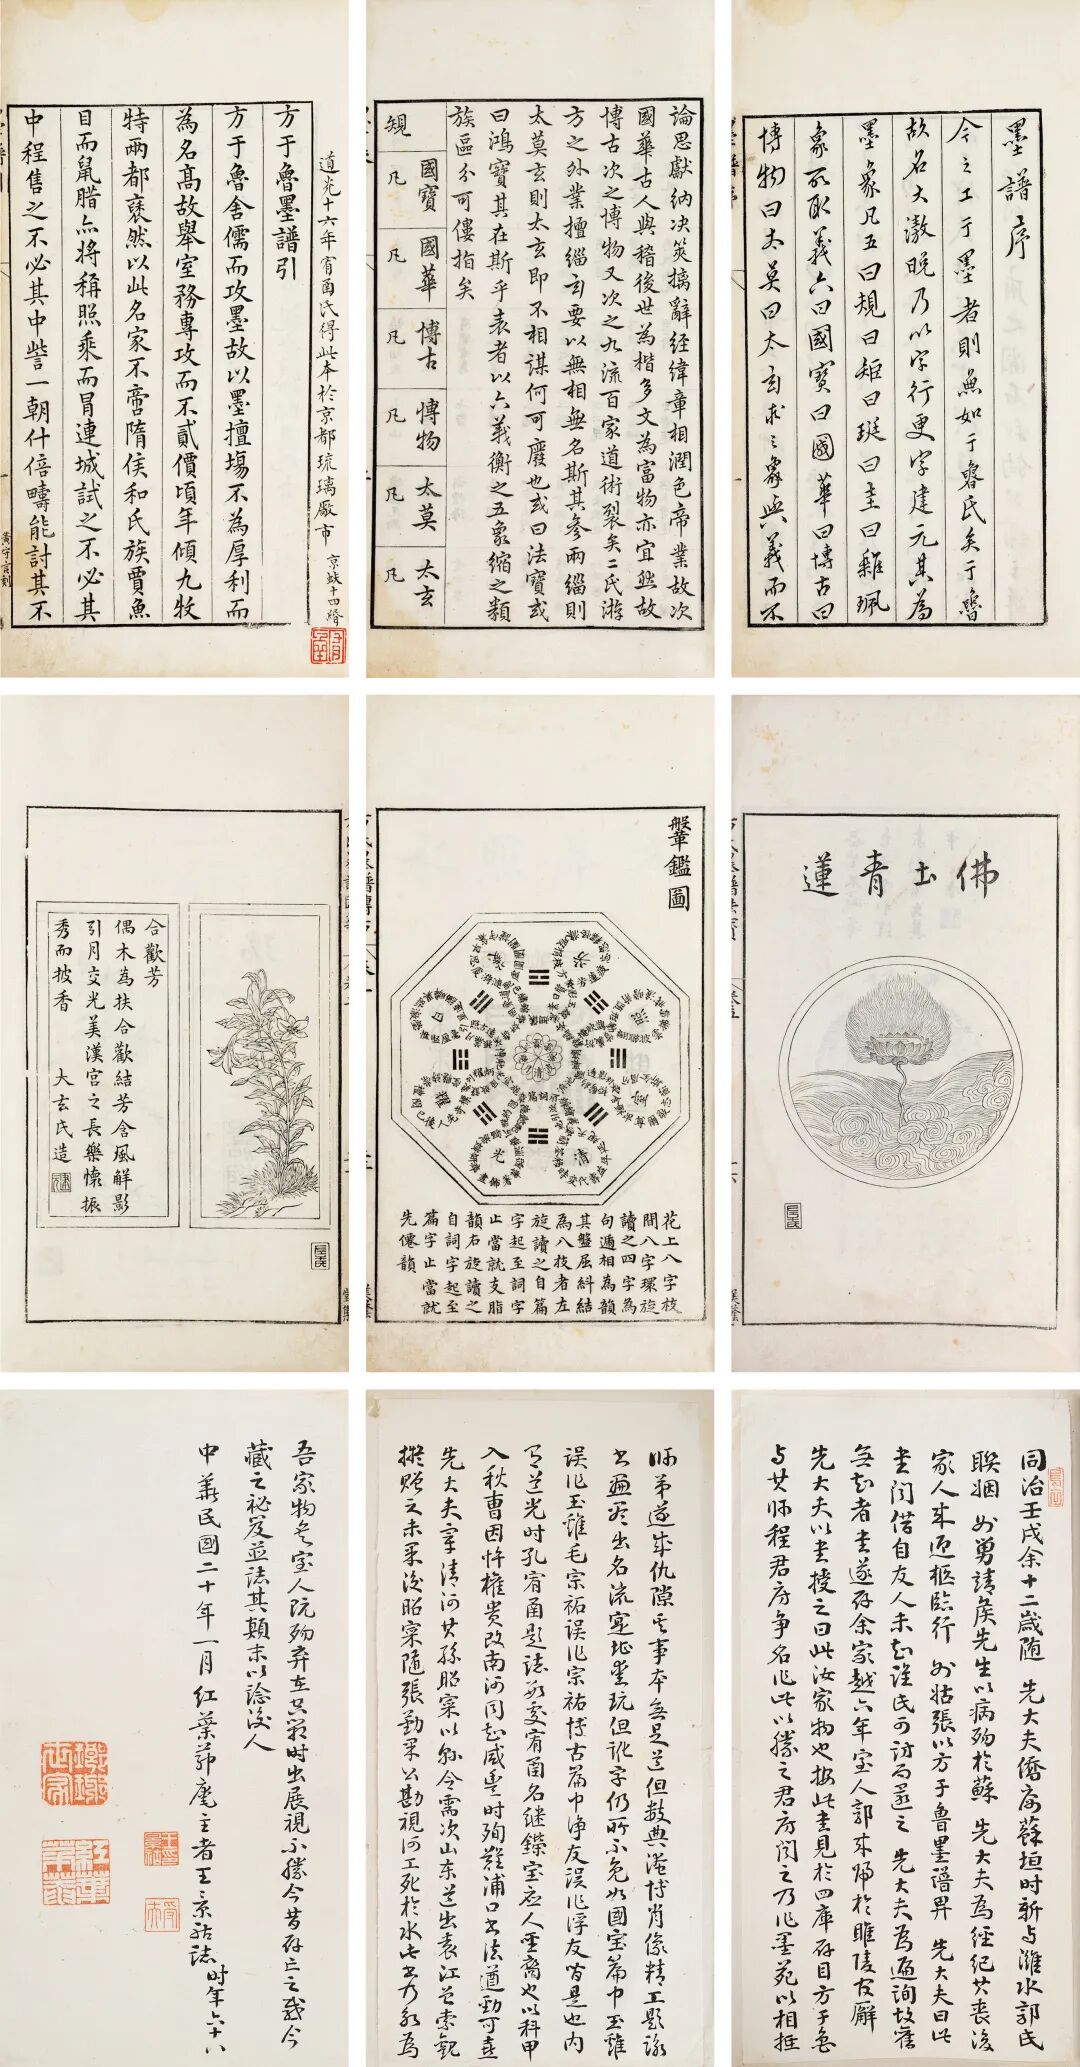 墨譜序
今之工于墨者則無如于魯氏矣于魯
故名大澂晚乃以字行更字建元其為
墨象凡五曰規曰矩曰珽曰圭曰雜珮
象所取義六曰國寶曰國華曰博古曰
博物曰太莫曰太玄求之象與義而不
論思獻納決筴摛辭經緯章相潤色帝業故次
國華古人與稽後世為楷多文為富物亦宜然故
博古次之博物又次之九流百家道術裂矣二氏游
方之外業擅緇玄要以無相無名斯其參兩緇則
太莫玄則太玄即不相謀何可廢也或曰法寶或
曰鴻寶其在斯乎表者以六義衡之五象縮之類
族區分可僂指矣
國寶 國華 博古 博物 太莫 太玄
規 凡 凡 凡 凡 凡 凡
道光十六年宥函氏得此本於京都琉璃廠市 京蚨十四緡
方于魯墨譜引
方于魯舍儒而攻墨故以墨擅場不為厚利而
為名高故舉室務專攻而不貳價頃年傾九牧
特兩都裒然以此名家不啻隋侯和氏族賈魚
目而鼠腊亦將稱照乘而冒連城試之不必其
中程售之不必其中訾一朝什倍疇能討其不
黃守言刻
佛土青蓮
鞶鑑圖
花上八字枝
間八字環旋
讀之四字為
句遞相為韻
其盤屈糾結
為八枝者左
旋讀之自篇
字起至詞字
止當就支脂
韻右旋讀之
自詞字起至
篇字止當就
先僊韻
合歡芳
偶木為扶合歡結芳含風解影
引月交光美漢宮之長樂懷振
秀而披香 大玄氏造
同治壬戌余十二歲随 先大夫僑寓蘇垣時新与濰水郭氏
聯姻 外舅請矦先生以病殁於蘇 先大夫為經紀其喪後
家人来迎柩臨行 外姑張以方于魯墨譜畀 先大夫曰此
書閒借自友人未知誰氏可訪而還之 先大夫為遍詢故舊
無知者書遂存余家越六年室人郭来歸於睢陵官廨
先大夫以書授之曰此汝家物也按此書見於四庫存目方于魯
与其師程君房争名作此以勝之君房聞之乃作墨苑以相抵
師弟遂成仇隙其事本無足道但数典淹博肖像精工題詠
書畫並出名流寔堪寶玩但訛字仍所不免如國宝篇中玉雞
误作玉雞毛宗祏误作宗祐博古篇中净友误作浮友皆是也内
有道光時孔宥函題誌
入秋曹因忤權貴改南河同知咸豐時殉難浦口書法遒勁可喜
先大夫宰清河其孫昭寀以縣令需次山东道出袁江曾索觀
擬贈之未果後昭寀随張勤果公勘視河工死於水此书乃永為
吾家物矣室人既殁弃在其笥時出展視不勝今昔存亡之感今
藏之祕笈並誌其顛末以諗後人
中華民國二十年一月紅葉